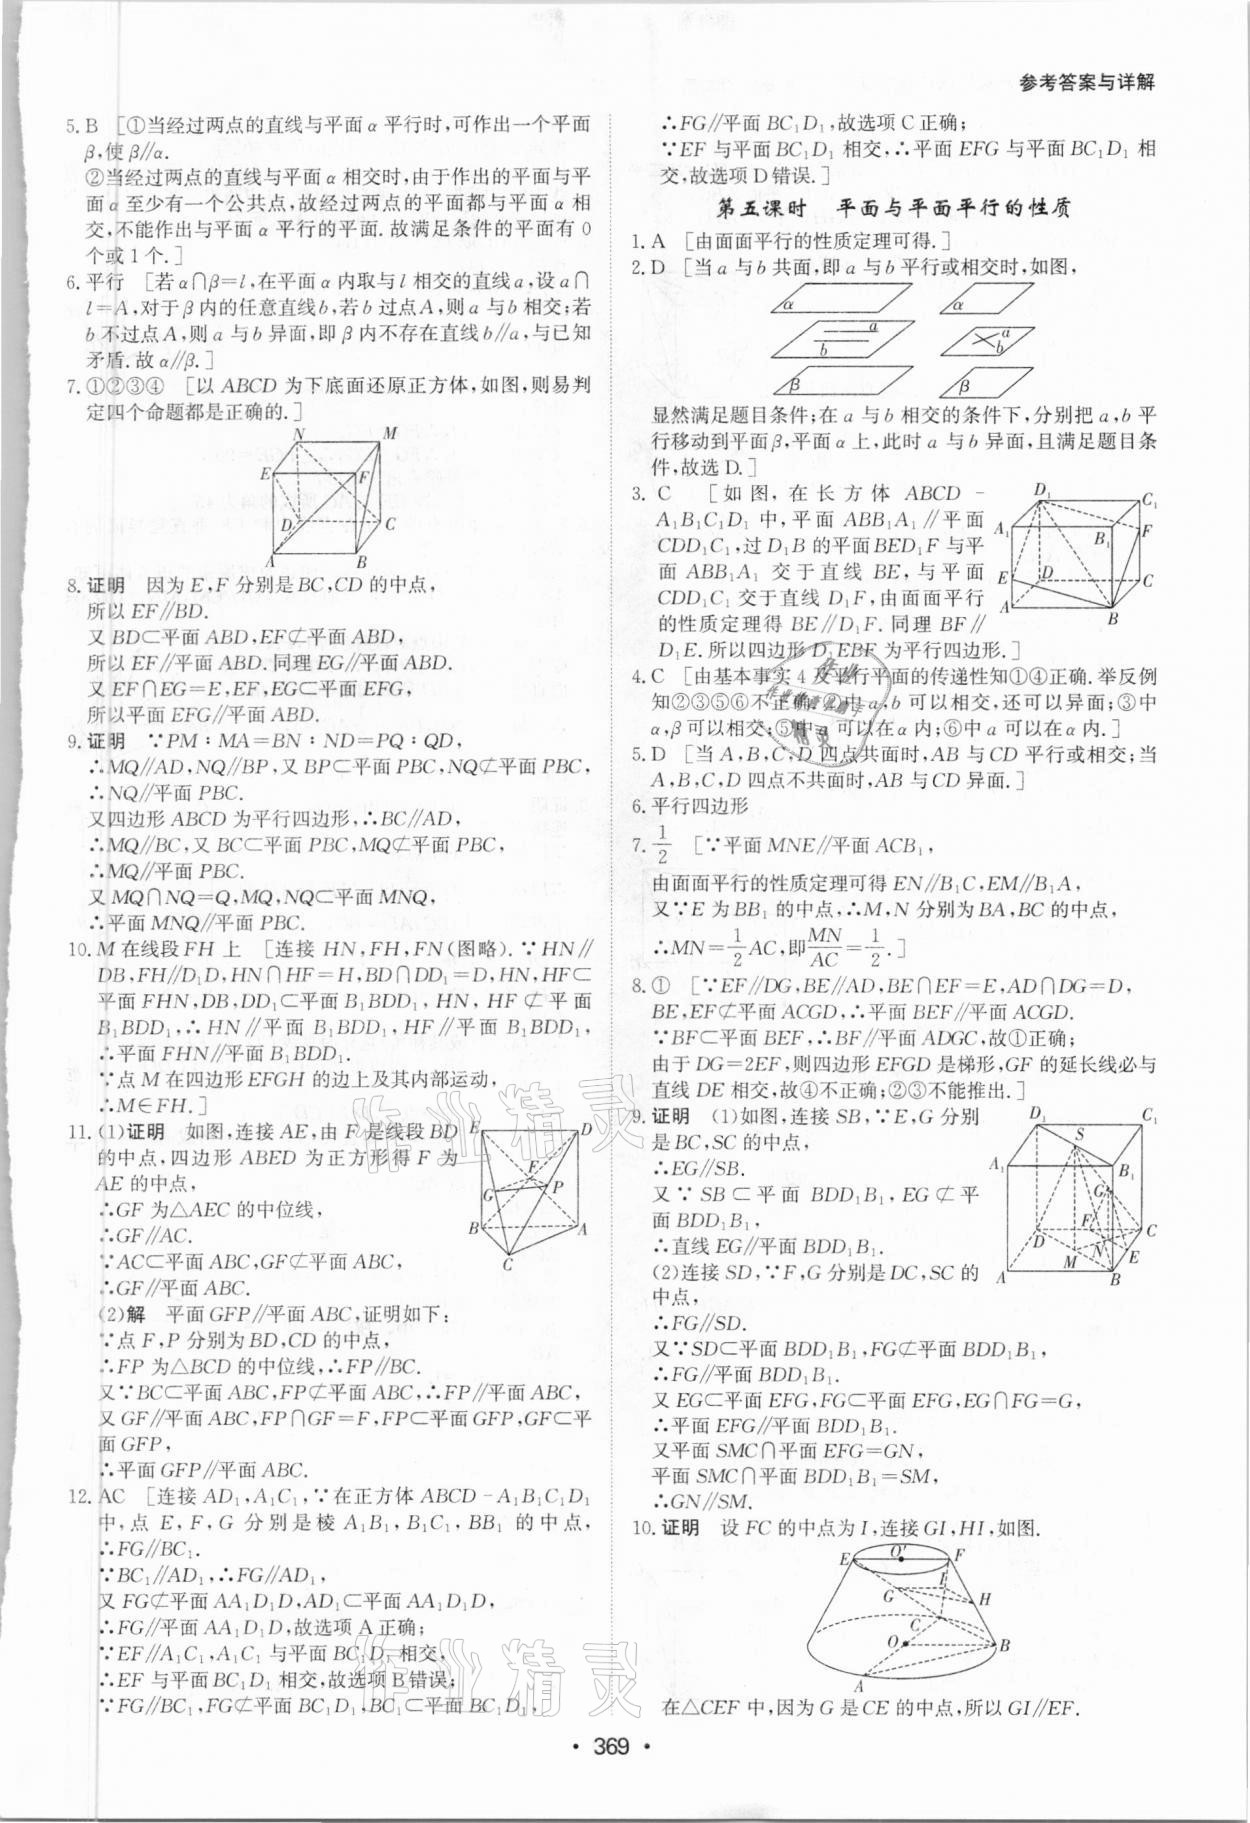 参考答案与详解
5. B [①当经过两点的直线与平面 α 平行时,可作出一个平面
β,使 β∥α.
②当经过两点的直线与平面 α 相交时,由于作出的平面与平
面 α 至少有一个公共点,故经过两点的平面都与平面 α 相
交,不能作出与平面 α 平行的平面. 故满足条件的平面有 0
个或 1 个.]
6. 平行 [若 α∩β=l,在平面 α 内取与 l 相交的直线 a,设 a∩
l=A,对于 β 内的任意直线 b,若 b 过点 A,则 a 与 b 相交;若
b 不过点 A,则 a 与 b 异面,即 β 内不存在直线 b∥a,与已知
矛盾. 故 α∥β.]
7. ①②③④ [以 ABCD 为下底面还原正方体,如图,则易判
定四个命题都是正确的.]
N M
E F
D C
A B
8. 证明 因为 E,F 分别是 BC,CD 的中点,
所以 EF∥BD.
又 BD⊂平面 ABD,EF⊄平面 ABD,
所以 EF∥平面 ABD. 同理 EG∥平面 ABD.
又 EF∩EG=E,EF,EG⊂平面 EFG,
所以平面 EFG∥平面 ABD.
9. 证明 ∵PM∶MA=BN∶ND=PQ∶QD,
∴MQ∥AD,NQ∥BP,又 BP⊂平面 PBC,NQ⊄平面 PBC,
∴NQ∥平面 PBC.
又四边形 ABCD 为平行四边形,∴BC∥AD,
∴MQ∥BC,又 BC⊂平面 PBC,MQ⊄平面 PBC,
∴MQ∥平面 PBC.
又 MQ∩NQ=Q,MQ,NQ⊂平面 MNQ,
∴平面 MNQ∥平面 PBC.
10. M 在线段 FH 上 [连接 HN,FH,FN(图略). ∵HN∥
DB,FH∥D₁D,HN∩HF=H,BD∩DD₁=D,HN,HF⊂
平面 FHN,DB,DD₁⊂平面 B₁BDD₁,HN,HF⊄平面
B₁BDD₁,∴HN∥平面 B₁BDD₁,HF∥平面 B₁BDD₁,
∴平面 FHN∥平面 B₁BDD₁.
∵点 M 在四边形 EFGH 的边上及其内部运动,
∴M∈FH.]
11. (1)证明 如图,连接 AE,由 F 是线段 BD
的中点,四边形 ABED 为正方形得 F 为
AE 的中点,
∴GF 为△AEC 的中位线,
∴GF∥AC.
∵AC⊂平面 ABC,GF⊄平面 ABC,
∴GF∥平面 ABC.
E D
F
G P
B A
C
(2)解 平面 GFP∥平面 ABC,证明如下:
∵点 F,P 分别为 BD,CD 的中点,
∴FP 为△BCD 的中位线,∴FP∥BC.
又∵BC⊂平面 ABC,FP⊄平面 ABC,∴FP∥平面 ABC,
又 GF∥平面 ABC,FP∩GF=F,FP⊂平面 GFP,GF⊂平
面 GFP,
∴平面 GFP∥平面 ABC.
12. AC [连接 AD₁,A₁C₁,∵在正方体 ABCD-A₁B₁C₁D₁
中,点 E,F,G 分别是棱 A₁B₁,B₁C₁,BB₁ 的中点,
∴FG∥BC₁.
∵BC₁∥AD₁,∴FG∥AD₁,
又 FG⊄平面 AA₁D₁D,AD₁⊂平面 AA₁D₁D,
∴FG∥平面 AA₁D₁D,故选项 A 正确;
∵EF∥A₁C₁,A₁C₁ 与平面 BC₁D₁ 相交,
∴EF 与平面 BC₁D₁ 相交,故选项 B 错误;
∵FG∥BC₁,FG⊄平面 BC₁D₁,BC₁⊂平面 BC₁D₁,
∴FG∥平面 BC₁D₁,故选项 C 正确;
∵EF 与平面 BC₁D₁ 相交,∴平面 EFG 与平面 BC₁D₁ 相
交,故选项 D 错误.]
第五课时 平面与平面平行的性质
1. A [由面面平行的性质定理可得.]
2. D [当 a 与 b 共面,即 a 与 b 平行或相交时,如图,
α α
a a
b b
β β
显然满足题目条件;在 a 与 b 相交的条件下,分别把 a,b 平
行移动到平面 β,平面 α 上,此时 a 与 b 异面,且满足题目条
件,故选 D.]
3. C [如图,在长方体 ABCD-
A₁B₁C₁D₁ 中,平面 ABB₁A₁∥平面
CDD₁C₁,过 D₁B 的平面 BED₁F 与平
面 ABB₁A₁ 交于直线 BE,与平面
CDD₁C₁ 交于直线 D₁F,由面面平行
的性质定理得 BE∥D₁F. 同理 BF∥
D₁E. 所以四边形 D₁EBF 为平行四边形.]
D₁ C₁
A₁ B₁ F
E D C
A B
4. C [由基本事实 4 及平行平面的传递性知①④正确. 举反例
知②③⑤⑥不正确. ②中 a,b 可以相交,还可以异面;③中
α,β 可以相交;⑤中 a 可以在 α 内;⑥中 a 可以在 α 内.]
5. D [当 A,B,C,D 四点共面时,AB 与 CD 平行或相交;当
A,B,C,D 四点不共面时,AB 与 CD 异面.]
6. 平行四边形
7. 1/2 [∵平面 MNE∥平面 ACB₁,
由面面平行的性质定理可得 EN∥B₁C,EM∥B₁A,
又∵E 为 BB₁ 的中点,∴M,N 分别为 BA,BC 的中点,
∴MN=1/2AC,即MN/AC=1/2.]
8. ① [∵EF∥DG,BE∥AD,BE∩EF=E,AD∩DG=D,
BE,EF⊄平面 ACGD,∴平面 BEF∥平面 ACGD.
∵BF⊂平面 BEF,∴BF∥平面 ADGC,故①正确;
由于 DG=2EF,则四边形 EFGD 是梯形,GF 的延长线必与
直线 DE 相交,故④不正确;②③不能推出.]
9. 证明 (1)如图,连接 SB,∵E,G 分别
是 BC,SC 的中点,
∴EG∥SB.
又∵SB⊂平面 BDD₁B₁,EG⊄平
面 BDD₁B₁,
∴直线 EG∥平面 BDD₁B₁.
(2)连接 SD,∵F,G 分别是 DC,SC 的
中点,
∴FG∥SD.
D₁ C₁
S
A₁ B₁
G
F
D C
M N E
A B
又∵SD⊂平面 BDD₁B₁,FG⊄平面 BDD₁B₁,
∴FG∥平面 BDD₁B₁.
又 EG⊂平面 EFG,FG⊂平面 EFG,EG∩FG=G,
∴平面 EFG∥平面 BDD₁B₁.
又平面 SMC∩平面 EFG=GN,
平面 SMC∩平面 BDD₁B₁=SM,
∴GN∥SM.
10. 证明 设 FC 的中点为 I,连接 GI,HI,如图.
E O′ F
I
G H
C
O B
A
在△CEF 中,因为 G 是 CE 的中点,所以 GI∥EF.
作业精灵
作业精灵
• 369 •